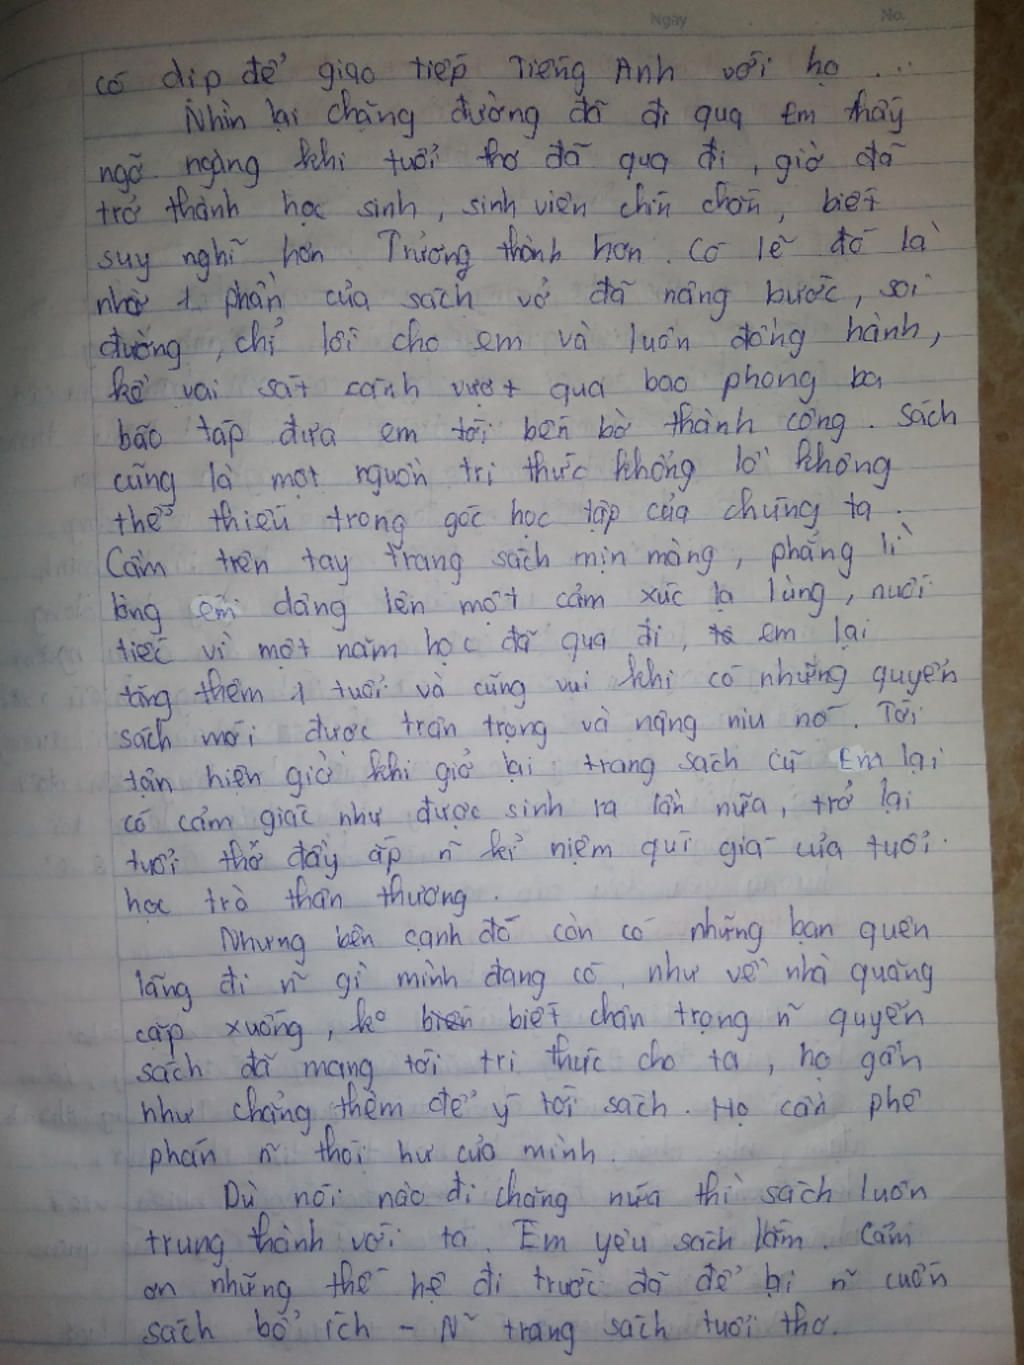 Ngày No.
có dịp để giao tiếp Tiếng Anh với họ ...
Nhìn lại chặng đường đã đi qua Em thấy
ngỡ ngàng khi tuổi thơ đã qua đi, giờ đã
trở thành học sinh, sinh viên chín chắn, biết
suy nghĩ hơn Trưởng thành hơn. Có lẽ đó là
nhờ 1 phần của sách vở đã nâng bước, soi
đường, chỉ lối cho em và luôn đồng hành,
kề vai sát cánh vượt qua bao phong ba
bão táp đưa em tới bến bờ thành công. Sách
cũng là một nguồn tri thức khổng lồ không
thể thiếu trong góc học tập của chúng ta.
Cầm trên tay Trang sách mịn màng, phẳng lì
lòng em dâng lên một cảm xúc lạ lùng, nuối
tiếc vì một năm học đã qua đi, em lại
tăng thêm 1 tuổi và cũng vui khi có những quyển
sách mới được trân trọng và nâng niu nó. Tới
tận hiện giờ khi giở lại trang sách cũ Em lại
có cảm giác như được sinh ra lần nữa, trở lại
tuổi thơ đầy ắp n~ kỉ niệm quí giá của tuổi
học trò thân thương.
Nhưng bên cạnh đó còn có những bạn quên
lãng đi n~ gì mình đang có, như về nhà quăng
cặp xuống, ko biết chân trọng n~ quyển
sách đã mang tới tri thức cho ta, họ gần
như chẳng thèm để ý tới sách. Họ cần phê
phán n~ thói hư của mình.
Dù nói nào đi chăng nữa thì sách luôn
trung thành với ta. Em yêu sách lắm. Cảm
ơn những thế hệ đi trước đã để lại n~ cuốn
sách bổ ích - N~ trang sách tuổi thơ.